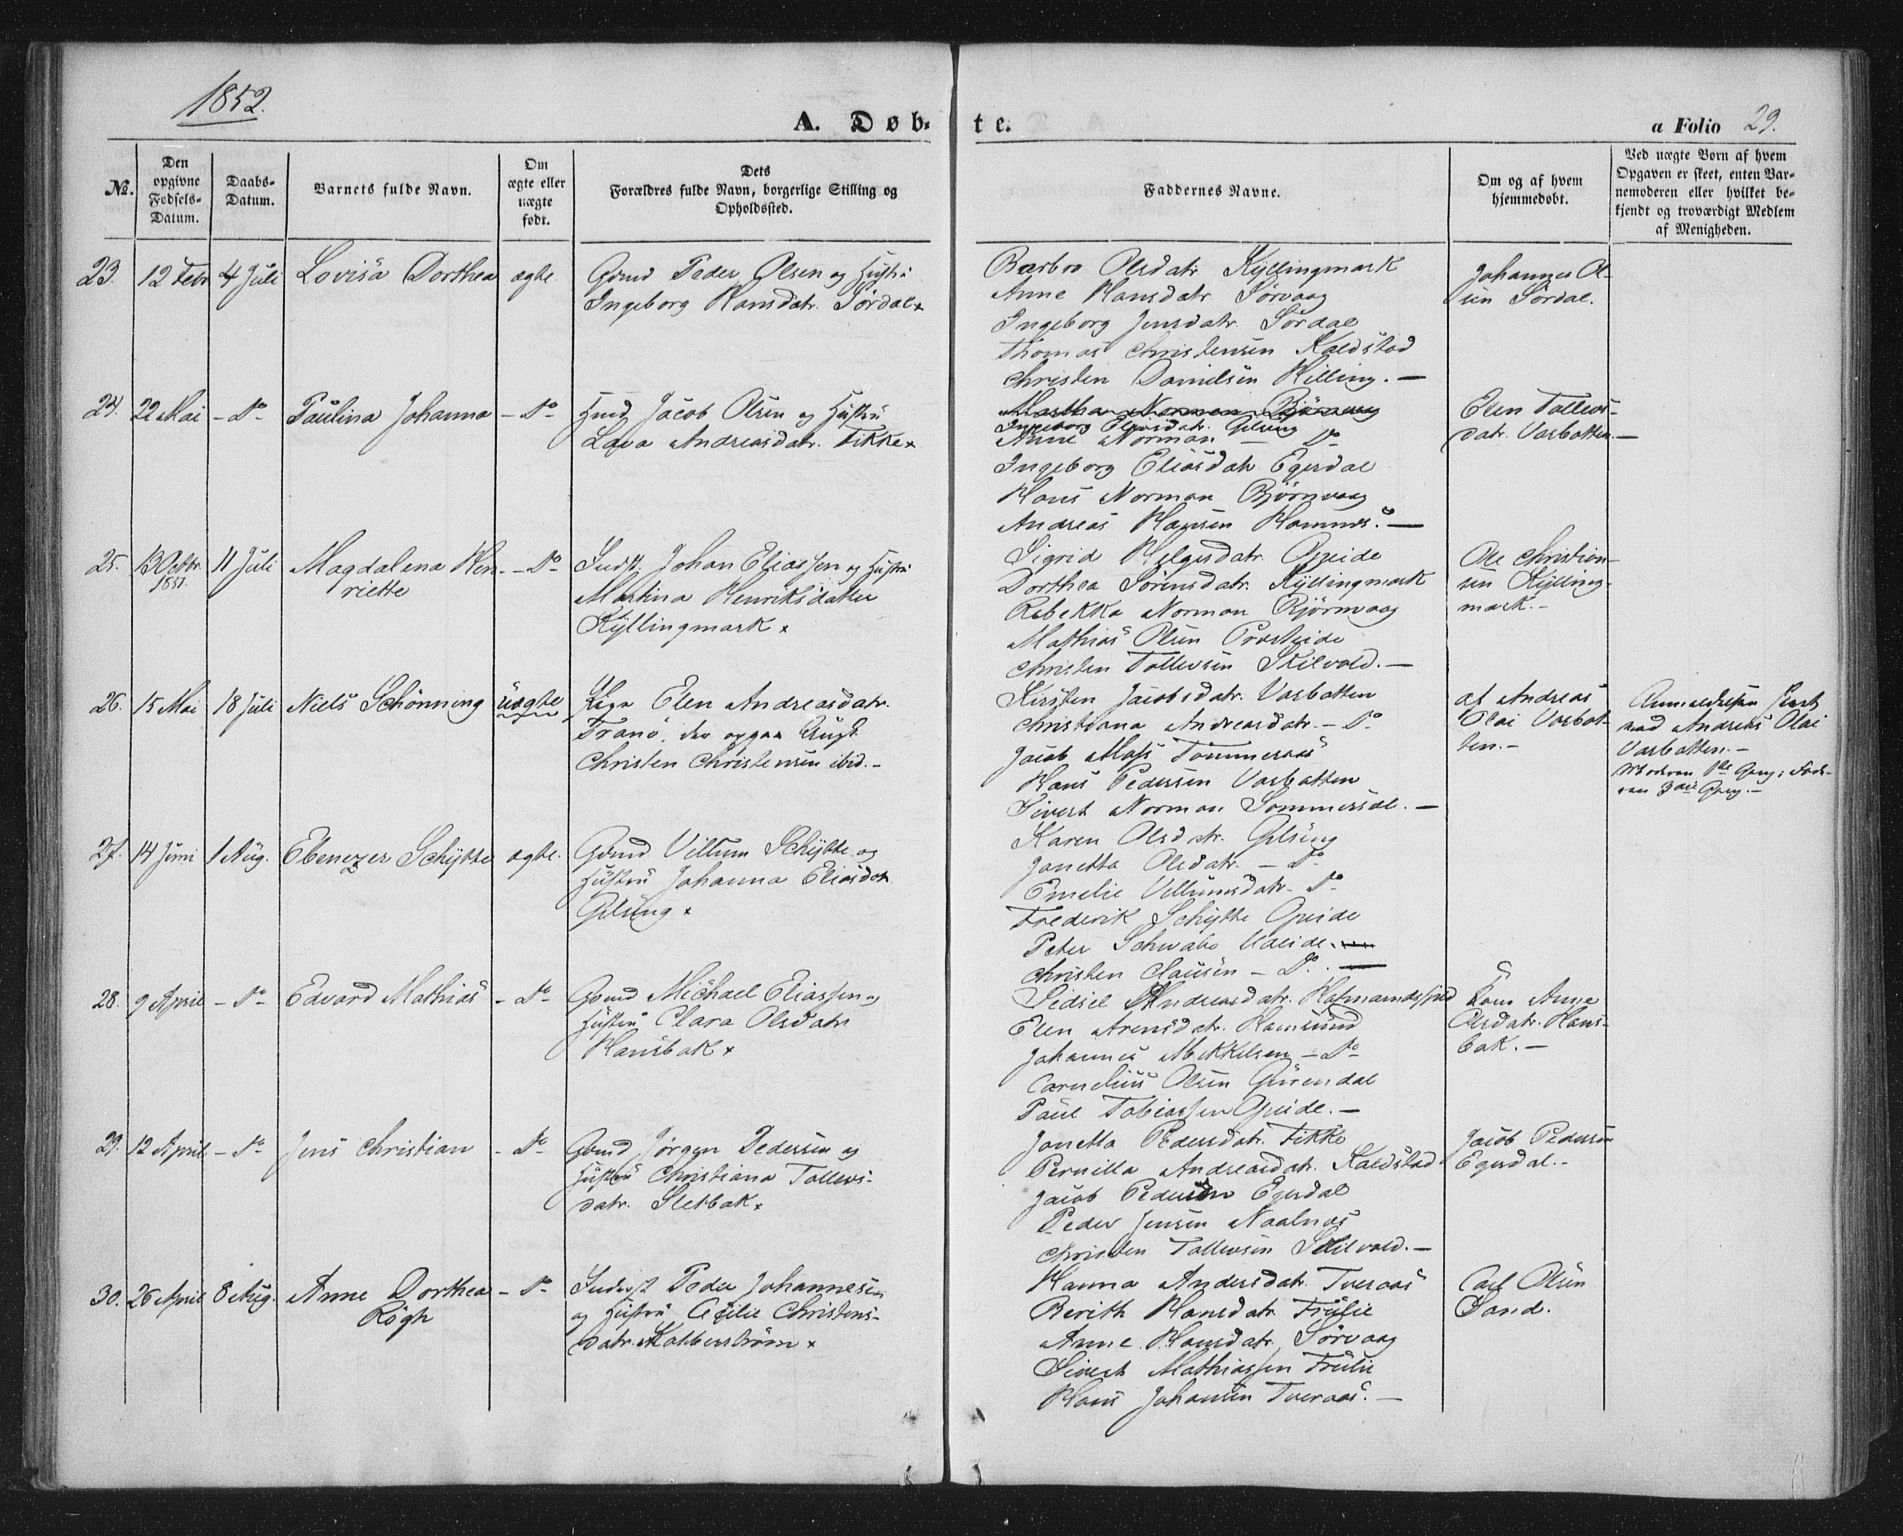 1852.
A. Døb-
te.
a Folio 29.
No.
Den opgivne Fødsels-Datum.
Daabs-Datum.
Barnets fulde Navn.
Om ægte eller uægte født.
Dets Forældres fulde Navn, borgerlige Stilling og Opholdssted.
Faddernes Navne.
Om og af hvem hjemmedøbt.
Ved uægte Børn af hvem Opgaven er skeet, enten Barnemoderen eller hvilket bekjendt og troværdigt Medlem af Menigheden.
23. 12 Febr 4 Juli Lovisa Dorthea ægte.
Gmd Peder Olsen og Hustru
Ingeborg Hansdatr. Sørdal x
Barbro Olsdatr Kyllingmark
Anne Hansdatr. Sørvaag
Ingeborg Jensdatr Sørdal
Thomas Christensen Kaldstad
Christen Danielsen Hilling. —
Johannes Ol-
sen Sørdal.
24. 22 Mai - do - Paulina Johanna - do
Hmd Jacob Olsen og Hustru
Lava Andreasdatr. Fikke x
Martha Norman Bjørnvaag
Ingeborg Eliasdatr. Gilsing
Anne Norman — do
Ingeborg Eliasdatr Egerdal
Hans Norman Bjørnvaag
Andreas Hansen Hamnes. —
Elen Tollevs-
datr. Varbatten —
25. 13 Octbr. 1851. 11 Juli Magdalena Hen-
riette - do -
Inds. Johan Eliassen og Hustru
Martina Henriksdatter
Kyllingmark x
Sigrid Helgesdatr. Opeide
Dorthea Sørensdatr. Kyllingmark
Rebekka Norman Bjørnvaag
Mathias Olsen Presteide
Christen Tollevsen Skilvold. —
Ole Christian-
sen Kylling-
mark. -
26. 15 Mai 18 Juli Niels Schønning uægte
Pige Elen Andreasdatr.
Tranø, den opgav Ungk.
Christen Christensen ibid. -
Kirsten Jacobsdatr. Varbatten
Christiana Andreasdatr. - do
Jacob Mass Tømmeraas
Hans Pedersen Varbatten
Sivert Norman Sommersæl. —
af Andreas
Olai Varbat-
ten. -
Anmeldelsen skeet
ved Andreas Olai
Varbatten. -
Moderen 1ste Gang; Fade-
ren 3die Gang. -
27. 14 Juni 1 Aug. Ebenezer Schytte ægte.
Gmd Villum Schytte og
Hustru Johanna Eliasdatr.
Gilsing x
Karen Olsdatr. Gilsing
Janetta Olsdatr. — do
Emelie Villumsdatr - do
Frederik Schytte Opeide
Peter Schwabe Ualeide.
Christen Clausen - do. —
28. 9 April - do - Edvard Mathias - do -
Gmd Michael Eliassen og
Hustru Clara Olsdatr
Hansbak x
Sidsel Andreasdatr. Habmandsfjord
Elen Arensdatr. Hamsund
Johannes Mekkelsen - do -
Cornelius Olsen Gurendal
Paul Tobiassen Opeide. —
Kone Anne
Olsdatr. Hans-
bak. —
29. 12 April - do Jens Christian - do
Gmd Jørgen Pedersen og
Hustru Christiana Tollevs-
datr. Sletbak x
Janetta Pedersdatr. Fikke
Pernilla Andreasdatr. Kaldstad
Jacob Pedersen Egerdal
Peder Jensen Naalnæs
Christen Tollevsen Skilvold. —
Jacob Pedersen
Egerdal. -
30. 26 April 8 Aug. Anne Dorthea
Røgh - do
Inderst Peder Johannesen
og Hustru Cecilie Christens-
datr. Kobberstrøm x
Hanna Andersdatr. Tveraas
Berith Hansdatr. Trulie
Anne Hansdatr. Sørvaag
Sivert Mathiassen Trulie
Hans Johansen Tveraas. —
Carl Olsen
Sand.